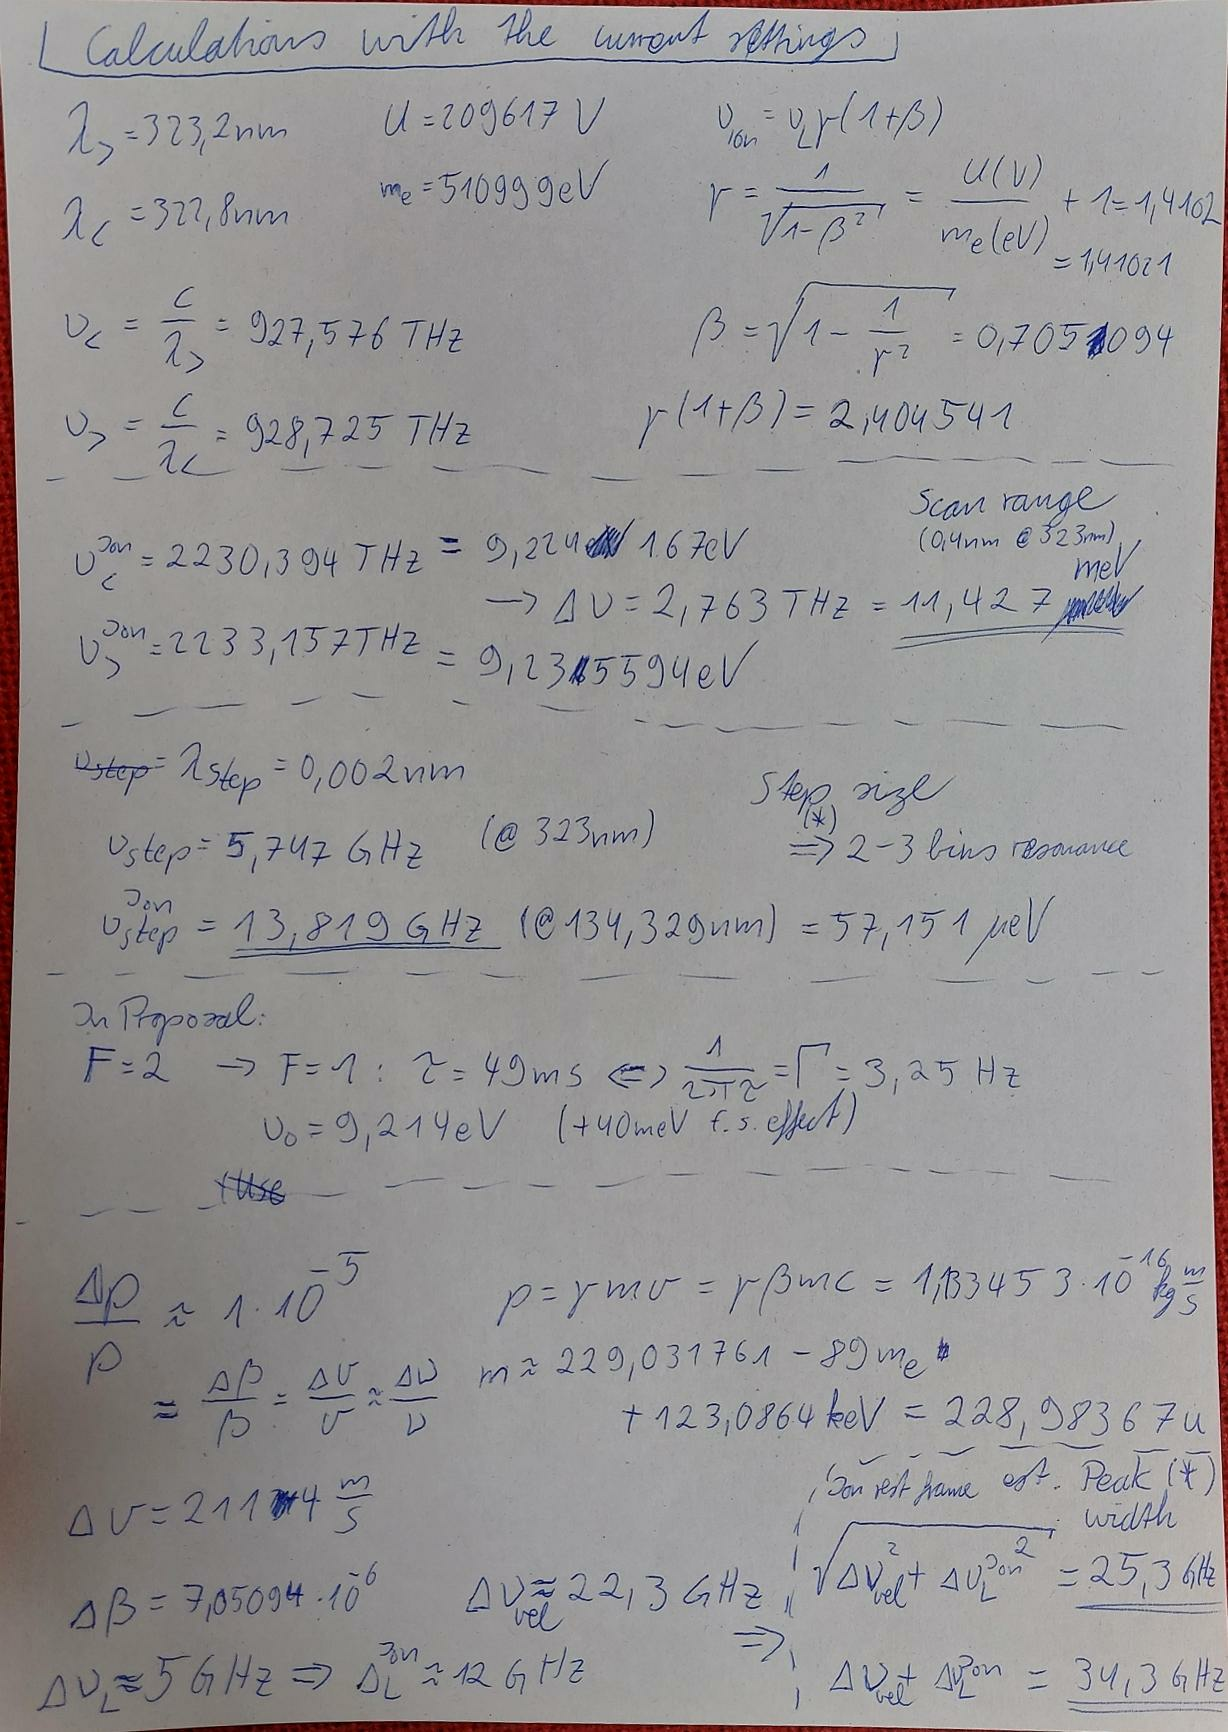 Calculations with the current settings
λ> = 323,2nm U = 209617 V ν_ion = ν_L γ(1+β)
λ< = 322,8nm m_e = 510999eV γ = 1/√(1-β²) = U(V)/m_e(eV) + 1 = 1,4102
= 1,41021
ν< = c/λ> = 927,576 THz β = √(1 - 1/γ²) = 0,7051094
ν> = c/λ< = 928,725 THz γ(1+β) = 2,404541
Scan range
(0,4nm @ 323nm)
ν<^Ion = 2230,394 THz = 9,224167eV
→ Δν = 2,763 THz = 11,427 meV
ν>^Ion = 2233,157THz = 9,235594eV
λstep = 0,002nm
Step size
νstep = 5,747 GHz (@ 323nm) (*) ⇒ 2-3 bins resonance
ν^Ion_step = 13,819 GHz (@ 134,329nm) = 57,151 μeV
In Proposal:
F=2 → F=1 : τ = 49ms ⇔ 1/2πτ = Γ = 3,25 Hz
ν₀ = 9,214eV (+40meV f.s. effect)
Δp/p ≈ 1·10^-5 p = γmv = γβmc = 1,133453·10^-16 kg m/s
≈ Δβ/β = Δv/v ≈ Δν/ν m ≈ 229,031761 - 89me
+ 123,0864 keV = 228,98367u
Δv = 2114 m/s
Ion rest frame est. Peak (*) width
Δβ = 7,05094·10^-6 Δν_vel ≈ 22,3 GHz ⇒ √(Δν_vel² + Δν_L^Ion²) = 25,3 GHz
Δν_L ≈ 5 GHz ⇒ Δ_L^Ion ≈ 12 GHz Δν_vel + Δν_L^Ion = 34,3 GHz